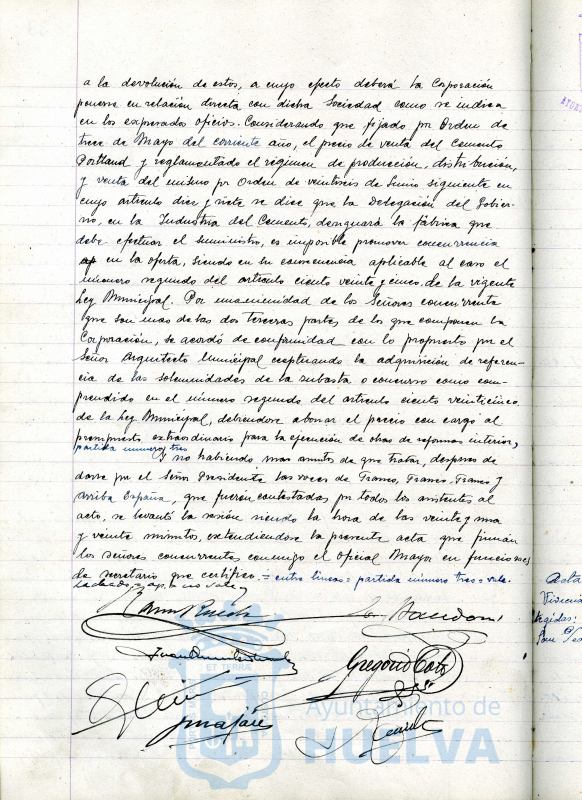 a la devolución de estos, a cuyo efecto deberá la Corporación
ponerse en relación directa con dicha Sociedad como se indica
en los expresados oficios. Considerando que fijado por Orden de
trece de Mayo del corriente año, el precio de venta del Cemento
Portland y reglamentado el régimen de producción, distribución,
y venta del mismo por Orden de veintiseis de Junio siguiente en
cuyo articulo diez y siete se dice que la Delegación del Gobier-
no, en la Industria del Cemento, designará la fábrica que
debe efectuar el suministro, es imposible promover concurrencia
en la oferta, siendo en su consecuencia aplicable al caso el
número segundo del articulo ciento veinte y cinco de la vigente
Ley Municipal. Por unanimidad de los Señores concurrentes
que son mas de las dos terceras partes de los que componen la
Corporación, se acordó de conformidad con lo propuesto por el
Señor Arquitecto Municipal exceptuando la adquisición de referen-
cia de las solemnidades de la subasta o concurso como com-
prendido en el número segundo del articulo ciento veinticinco
de la Ley Municipal, debiendose abonar el precio con cargo al
presupuesto extraordinario para la ejecución de obras de reforma interior,
partida número tres
y no habiendo mas asuntos de que tratar, despues de
darse por el Señor Presidente las voces de Franco, Franco, Franco y
Arriba España, que fueron contestadas por todos los asistentes al
acto, se levantó la sesión siendo la hora de las veinte y una
y veinte minutos, extendiendose la presente acta que firman
los señores concurrentes conmigo el Oficial Mayor en funciones
de secretario que certifico.= entre lineas= partida número tres= vale.
Gregorio Coto
Ayuntamiento de
HUELVA
Acta